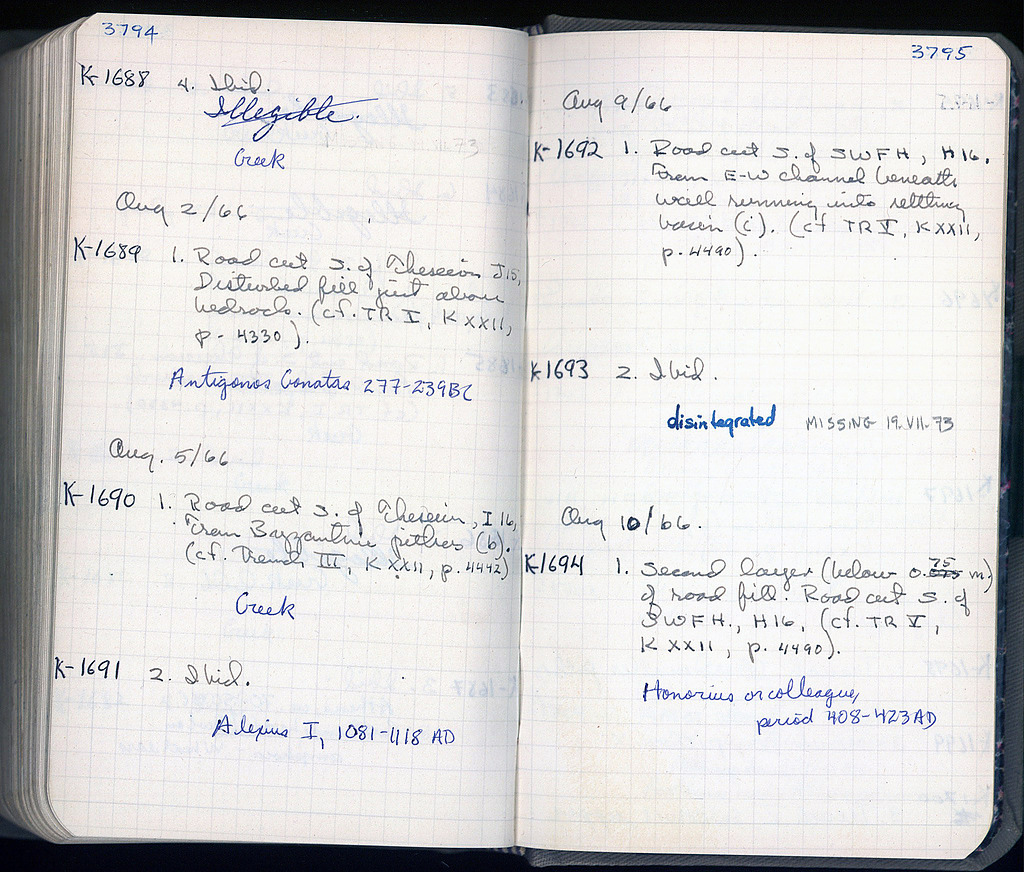 3794
K-1688 4. Ibid.
Illegible.
Greek
Aug 2/66
K-1689 1. Road cut S. of Theseion J 15,
Disturbed fill just above
bedrock. (cf. TR I, K XXII,
p. 4330).
Antigonos Gonatas 277-239BC
Aug. 5/66
K-1690 1. Road cut S. of Theseion, I 16,
From Byzantine pithos (b).
(cf. Trench III, K XXII, p. 4442)
Greek
K-1691 2. Ibid.
Alexius I, 1081-1118 AD
3795
Aug 9/66
K-1692 1. Road cut S. of SWFH, H16.
From E-W channel beneath
wall running into settling
basin (i). (cf TR V, K XXII,
p. 4490).
K-1693 2. Ibid.
disintegrated MISSING 19.VII.73
Aug 10/66.
K-1694 1. Second layer (below 0.75 m)
of road fill. Road cut S. of
SWFH., H16, (cf. TR V,
K XXII, p. 4490).
Honorius or colleague,
period 408-423AD